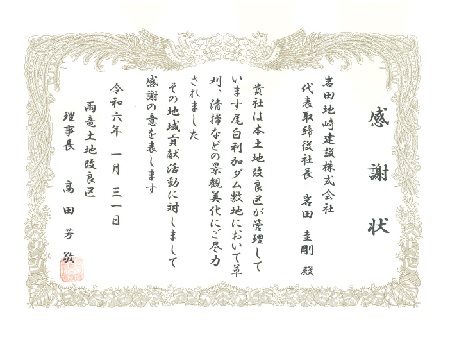 感謝状
岩田地崎建設株式会社
代表取締役社長 岩田 圭剛 殿
貴社は本土地改良区が管理して
います尾白利加ダム敷地において草
刈、清掃などの景観美化にご尽力
されました
その地域貢献活動に対しまして
感謝の意を表します
令和六年 一月 三一日
雨竜土地改良区
理事長 高田 芳